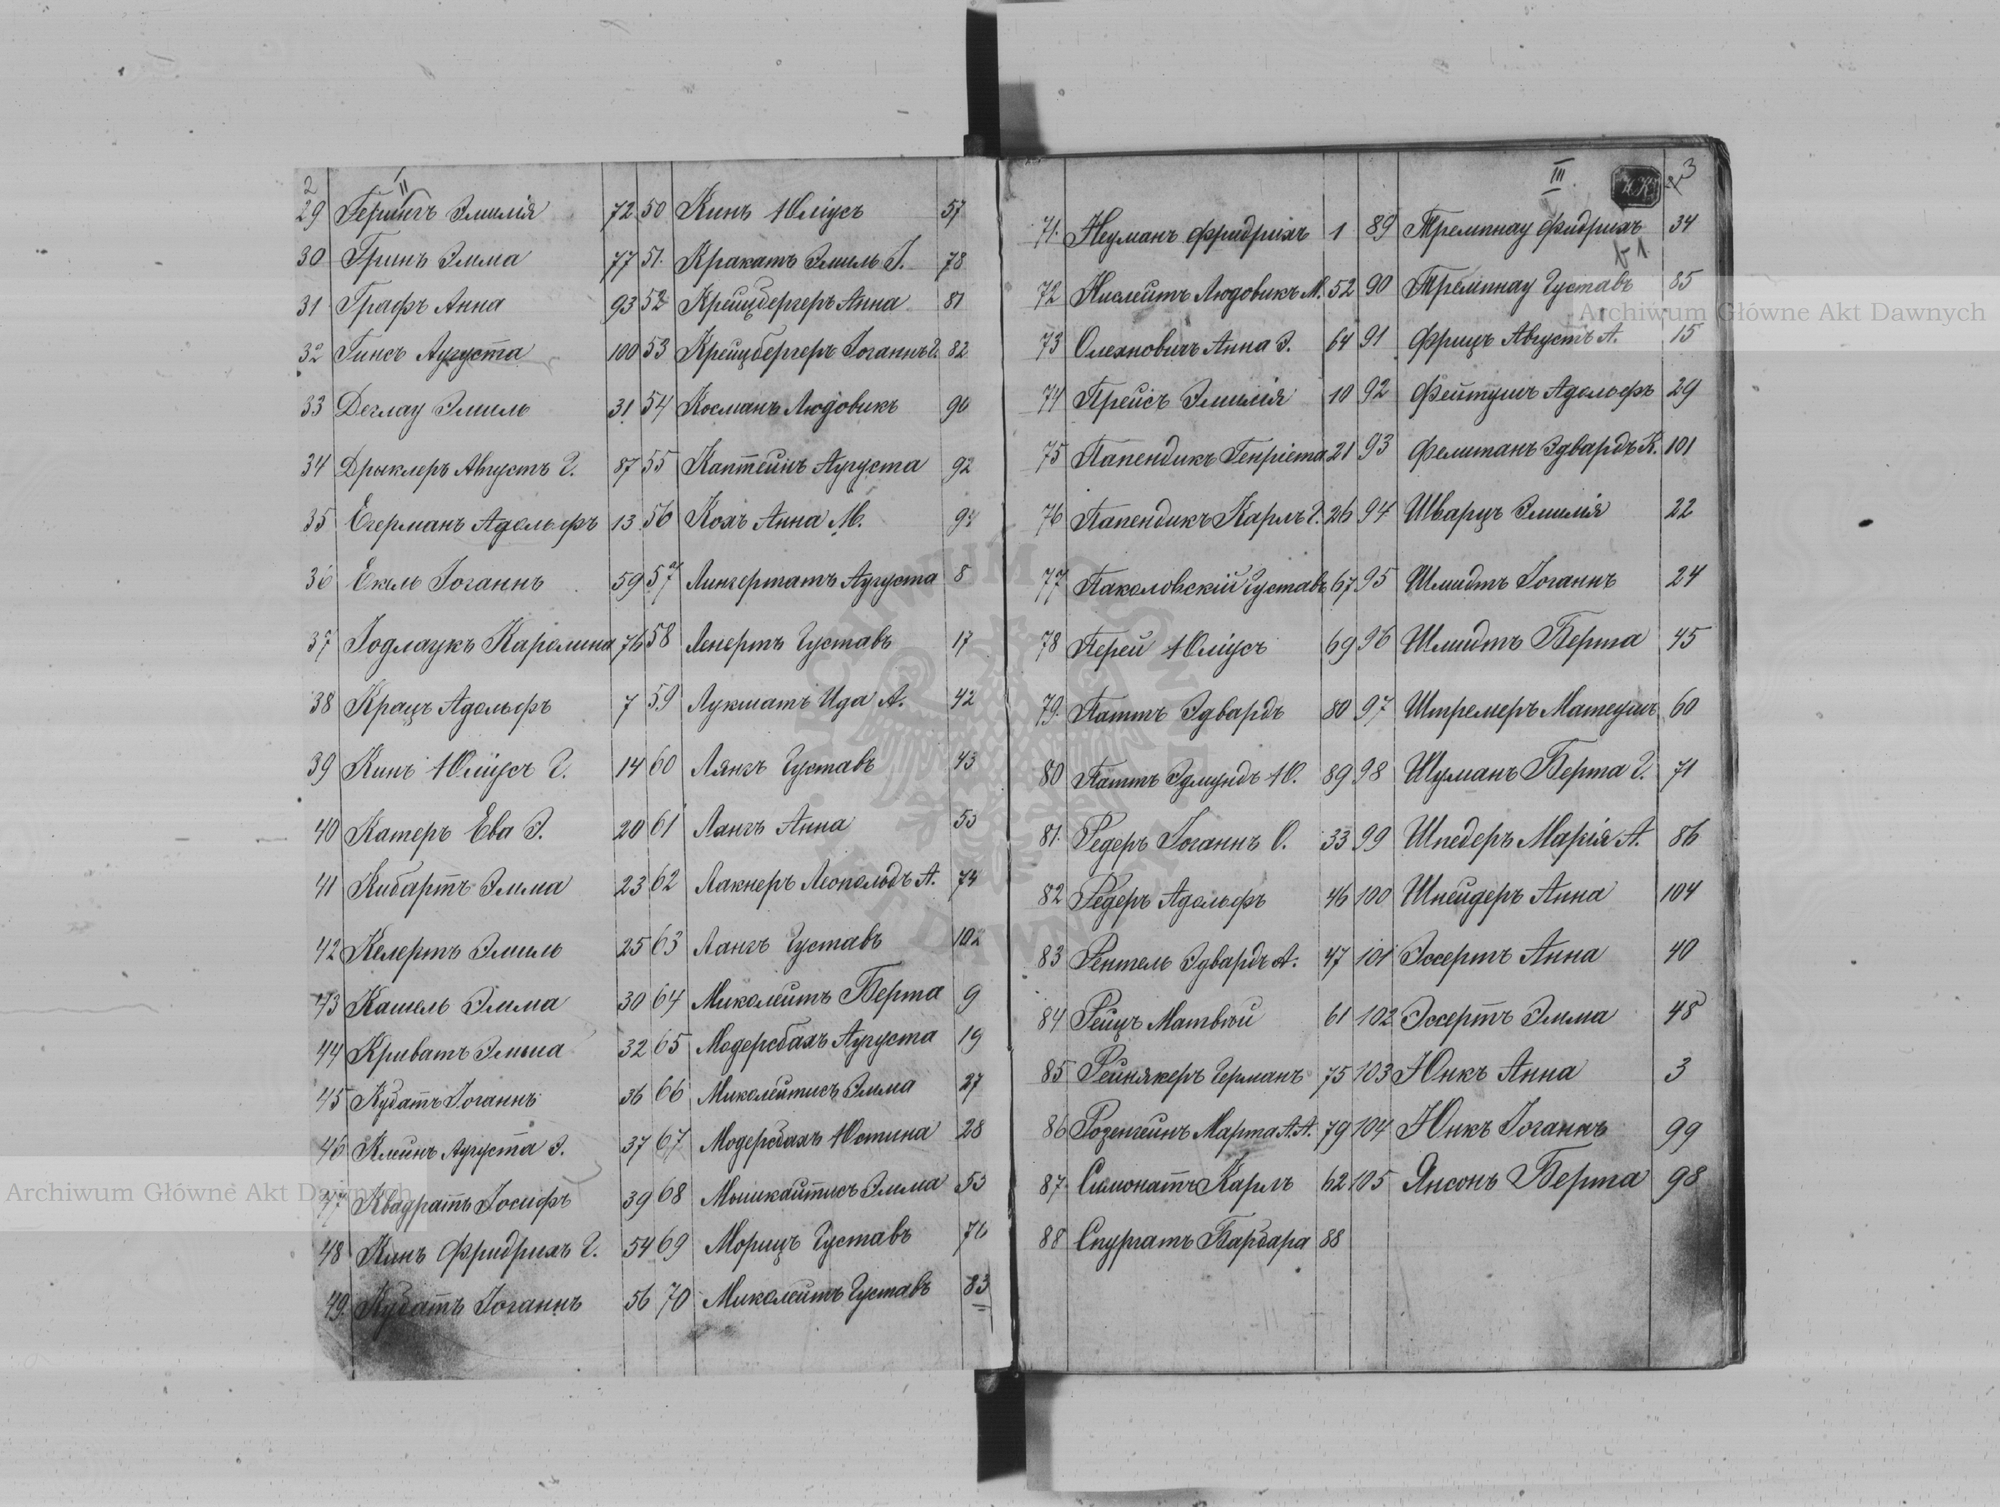 2
II
29 Герингъ Эмилія 72
30 Гринъ Эмма 77
31 Графъ Анна 93
32 Гинсъ Аугуста 100
33 Деглау Эмиль 31
34 Дрыклеръ Августъ Г. 87
35 Егерманъ Адольфъ 13
36 Екель Іоганнъ 59
37 Іодлаукъ Каролина 76
38 Крацъ Адольфъ 7
39 Кинъ Юліусъ Г. 14
40 Катеръ Ева Э. 20
41 Кибартъ Эмма 23
42 Келертъ Эмиль 25
43 Кашель Эмма 30
44 Криватъ Эмма 32
45 Кубатъ Іоганнъ 36
46 Клейнъ Аугуста Э. 37
47 Квадратъ Іосифъ 39
48 Кинъ Фридрихъ Г. 54
49 Кубатъ Іоганнъ 56
50 Кинъ Юліусъ 57
51 Кракатъ Эмиль І. 78
52 Крейцбергеръ Анна 81
53 Крейцбергеръ Іоганнъ Г. 82
54 Косманъ Людовикъ 90
55 Каптейнъ Аугуста 92
56 Кохъ Анна М.
57 Лингертатъ Аугуста 8
58 Ленертъ Густавъ 17
59 Лукшатъ Ида А. 42
60 Лянгъ Густавъ 43
61 Лангъ Анна
62 Лакнеръ Леопольдъ А. 74
63 Лангъ Густавъ 102
64 Миколейтъ Берта 9
65 Модерсбахъ Аугуста 19
66 Миколейтисъ Эмма 27
67 Модерсбахъ Юстина 28
68 Мышкайтисъ Эмма 53
69 Морицъ Густавъ 70
70 Миколейтъ Густавъ 83
III
3
71 Неуманъ Фридрихъ 1
72 Нислейтъ Людовикъ М. 52
73 Олехновичъ Анна Э. 64
74 Прейсъ Эмилія 10
75 Папендикъ Генріета 21
76 Папендикъ Карлъ Г. 26
77 Паколовскій Густавъ 67
78 Перей Юліусъ 69
79 Паттъ Эдвардъ 80
80 Паттъ Эдмундъ Ю. 89
81 Редеръ Іоганнъ О. 33
82 Редеръ Адольфъ 46
83 Рентель Эдвардъ А. 47
84 Рейцъ Матвѣй 61
85 Рейнякеръ Германъ 75
86 Розенгейнъ Марта А.А. 79
87 Симонатъ Карлъ 62
88 Спургатъ Барбара 88
89 Тремпнау Фридрихъ 34
90 Тремпнау Густавъ 85
91 Фрицъ Августъ А. 15
92 Фейтушъ Адольфъ 29
93 Фелитанъ Эдвардъ К. 101
94 Шварцъ Эмилія 22
95 Шмидтъ Іоганнъ 24
96 Шмидтъ Берта 45
97 Штремеръ Матеушъ 60
98 Шуманъ Берта Г. 71
99 Шпедеръ Марія А. 86
100 Шнейдеръ Анна 104
101 Эссертъ Анна 40
102 Эссертъ Эмма 48
103 Юнкъ Анна 3
104 Юнкъ Іоганнъ 99
105 Янсонъ Берта 98
Archiwum Główne Akt Dawnych
Archiwum Główne Akt Dawnych